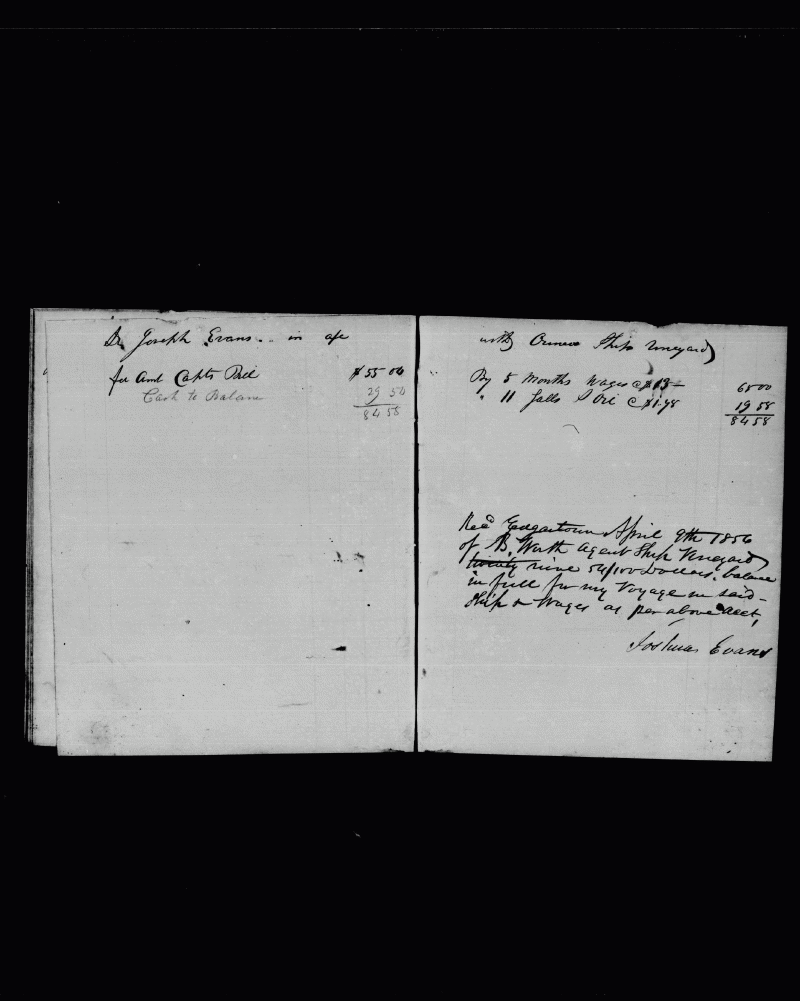 Dr Joseph Evans.. in a/c
for Amt Capts Bill $55 06
Cash to Balance 29 50
84 58
with Owners Ship Vineyard
By 5 Months Wages @ $13— 65 00
" 11 Galls S Oil @ $1.78 19 58
84 58
Recd Edgartown April 9th 1856
of B. Worth Agent Ship Vineyard
twenty nine 54/100 Dollars, balance
in full for my Voyage in said
Ship or Wages as per above acct,
Joshua Evans